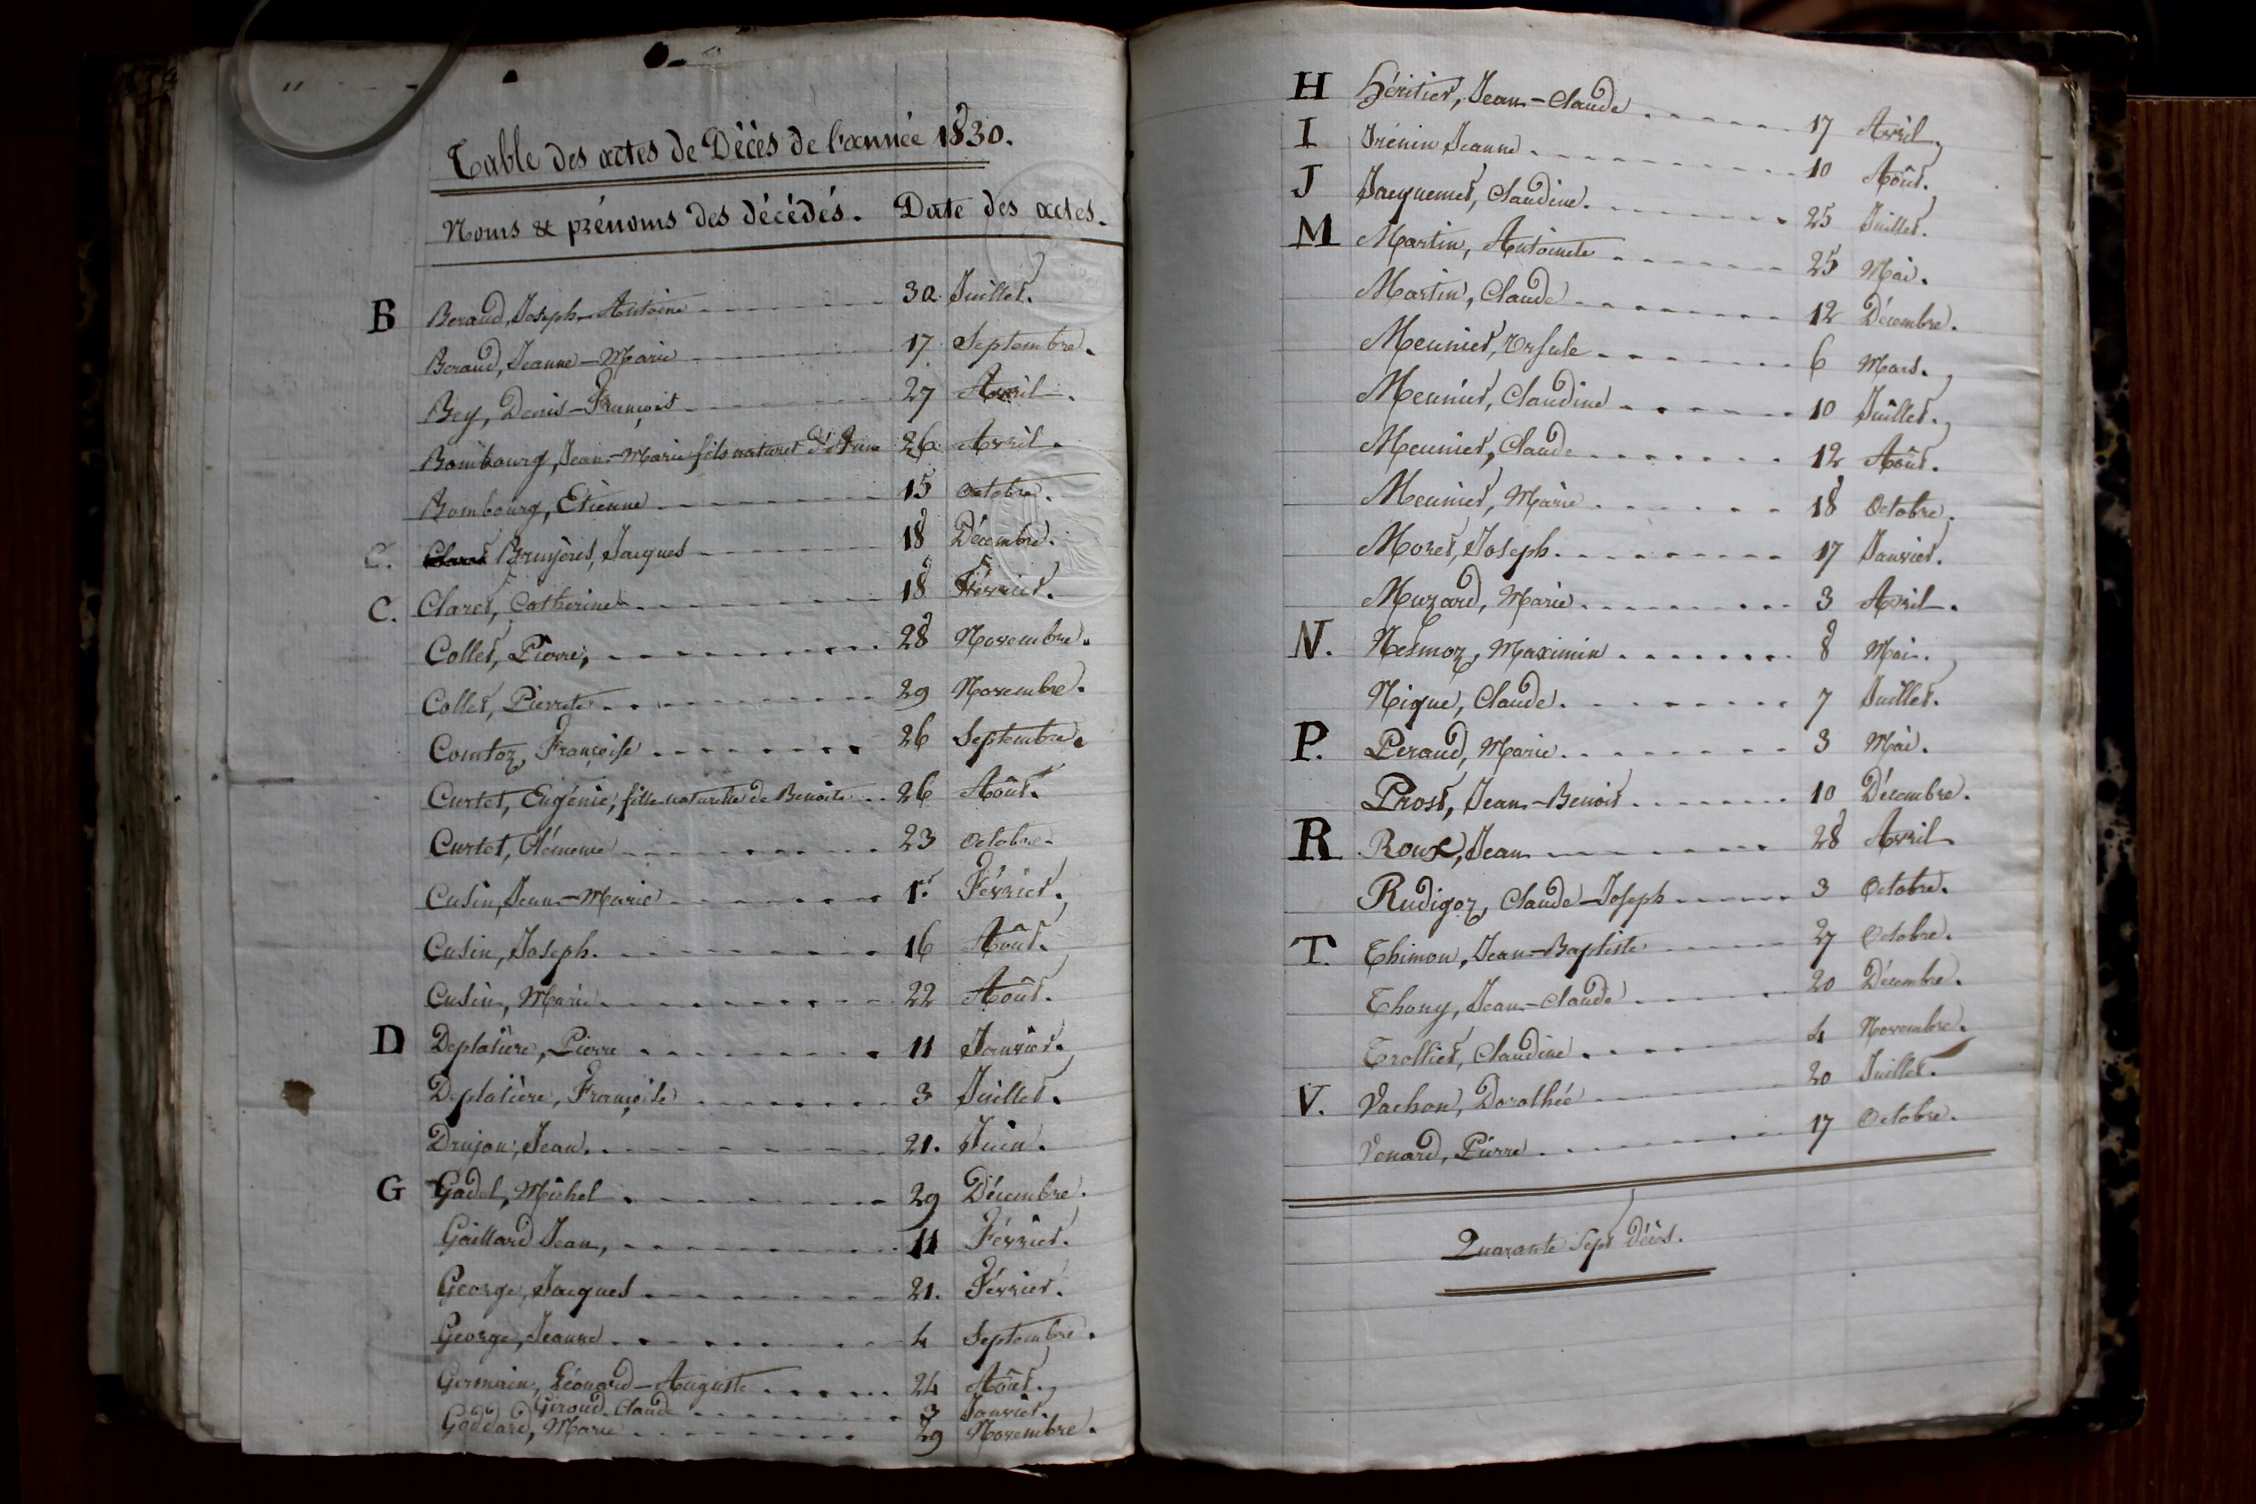 Table des actes de Décès de l'année 1830.
Noms & prénoms des décédés. Date des actes.
B Beraud, Joseph-Antoine 30 Juillet.
Beraud, Jeanne-Marie 17 Septembre.
Bey, Denis-François 27 Avril.
Bombourg, Jean-Marie fils naturel d'Anne 26 Avril.
Bombourg, Etienne 15 octobre.
C. Claret Bruyères, Jacques 18 Décembre.
C. Claret, Catherine 18 Février.
Collet, Pierre, 28 Novembre.
Collet, Pierrete 29 Novembre.
Comtoz, Françoise 26 Septembre.
Curtet, Eugénie, fille naturelle de Benoite 26 Août.
Curtet, Clémence 23 octobre.
Cusin, Jean-Marie 1er Février.
Cusin, Joseph. 16 Août.
Cusin, Marie 22 Août.
D Deplatière, Pierre 11 Janvier.
Deplatière, Françoise 3 Juillet.
Drujon, Jean. 21. Juin.
G Gadel, Michel 29 Décembre.
Gaillard Jean, 11 Février.
George, Jacques 21. Février.
George, Jeanne 4 Septembre.
Germain, Léonard-Auguste 24 Août.
Giroud Claude 3 Janvier.
Goddard, Marie 29 Novembre.
H Héritier, Jean-Claude 17 Avril.
I Irénin Jeanne 10 Août.
J Jacquemet, Claudine. 25 Juillet.
M Martin, Antoinete 25 Mai.
Martin, Claude 12 Décembre.
Meunier, Ursule 6 Mars.
Meunier, Claudine 10 Juillet.
Meunier, Claude 12 Août.
Meunier, Marie 18 Octobre.
Moret, Joseph. 17 Janvier.
Muzard, Marie 3 Avril.
N. Nesmoz, Maximin 8 Mai.
Nique, Claude. 7 Juillet.
P. Peraud, Marie 3 Mai.
Prost, Jean-Benoit 10 Décembre.
R Roux, Jean 28 Avril
Rudigoz, Claude-Joseph 3 Octobre.
T. Thimon, Jean-Baptiste 27 Octobre.
Thony, Jean-Claude 20 Décembre.
Trollier, Claudine. 4 Novembre.
V. Vachon, Dorothée 20 Juillet.
Venard, Pierre 17 Octobre.
Quarante Sept Décès.